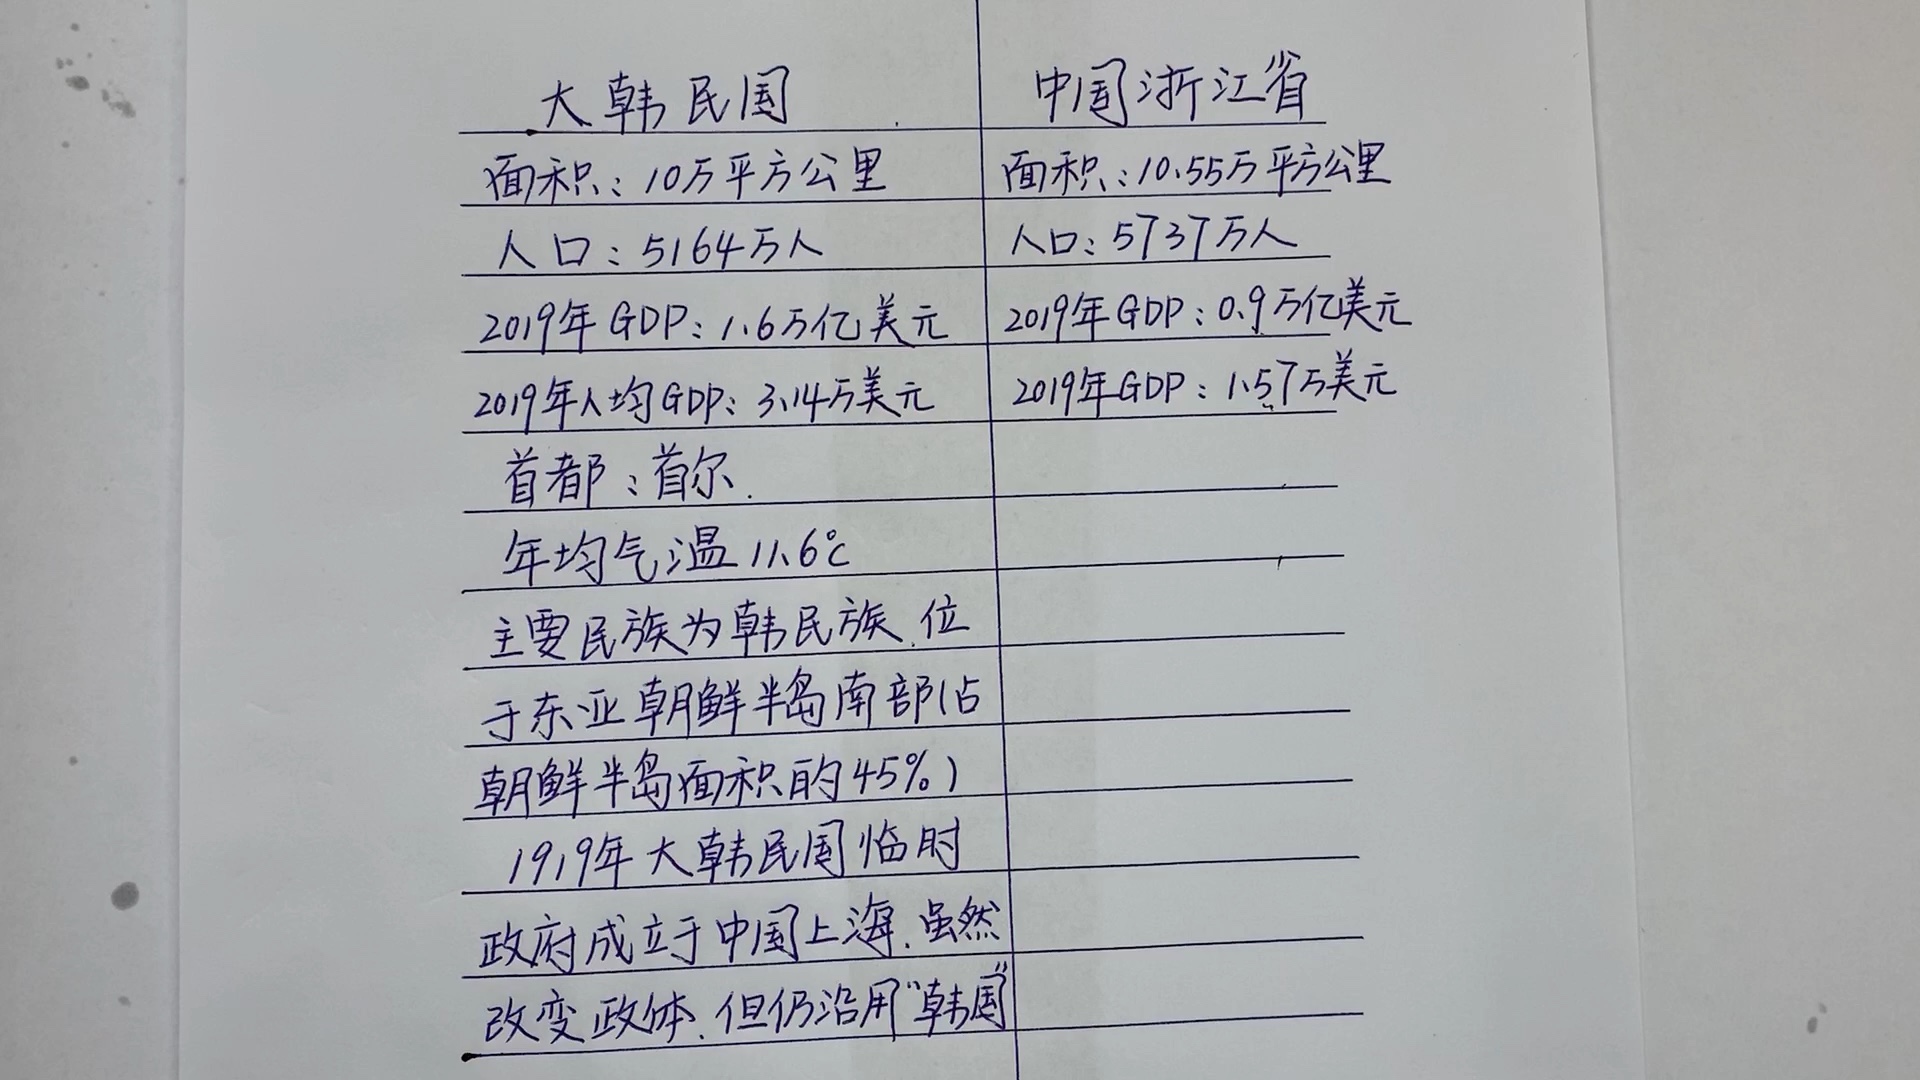 大韩民国 中国浙江省
面积：10万平方公里 面积：10.55万平方公里
人口：5164万人 人口：5737万人
2019年GDP：1.6万亿美元 2019年GDP：0.9万亿美元
2019年人均GDP：3.14万美元 2019年GDP：1.57万美元
首都：首尔.
年均气温11.6℃
主要民族为韩民族.位
于东亚朝鲜半岛南部(占
朝鲜半岛面积的45%)
1919年大韩民国临时
政府成立于中国上海.虽然
改变政体.但仍沿用“韩国”